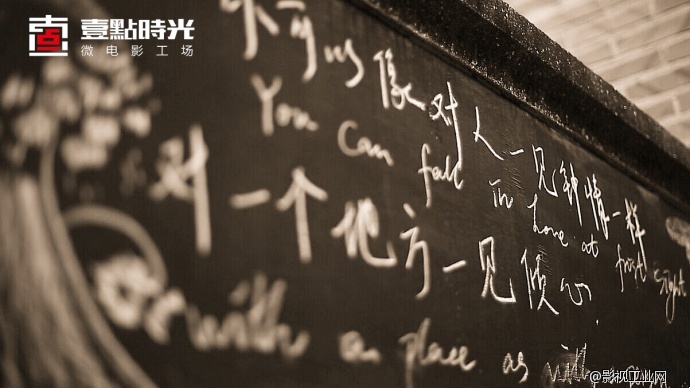 壹點時光
微电影工场
你可以像对人一见钟情一样
You can fall in Love at first sight
对一个地方一见倾心
with a place as with a
@影视工业网